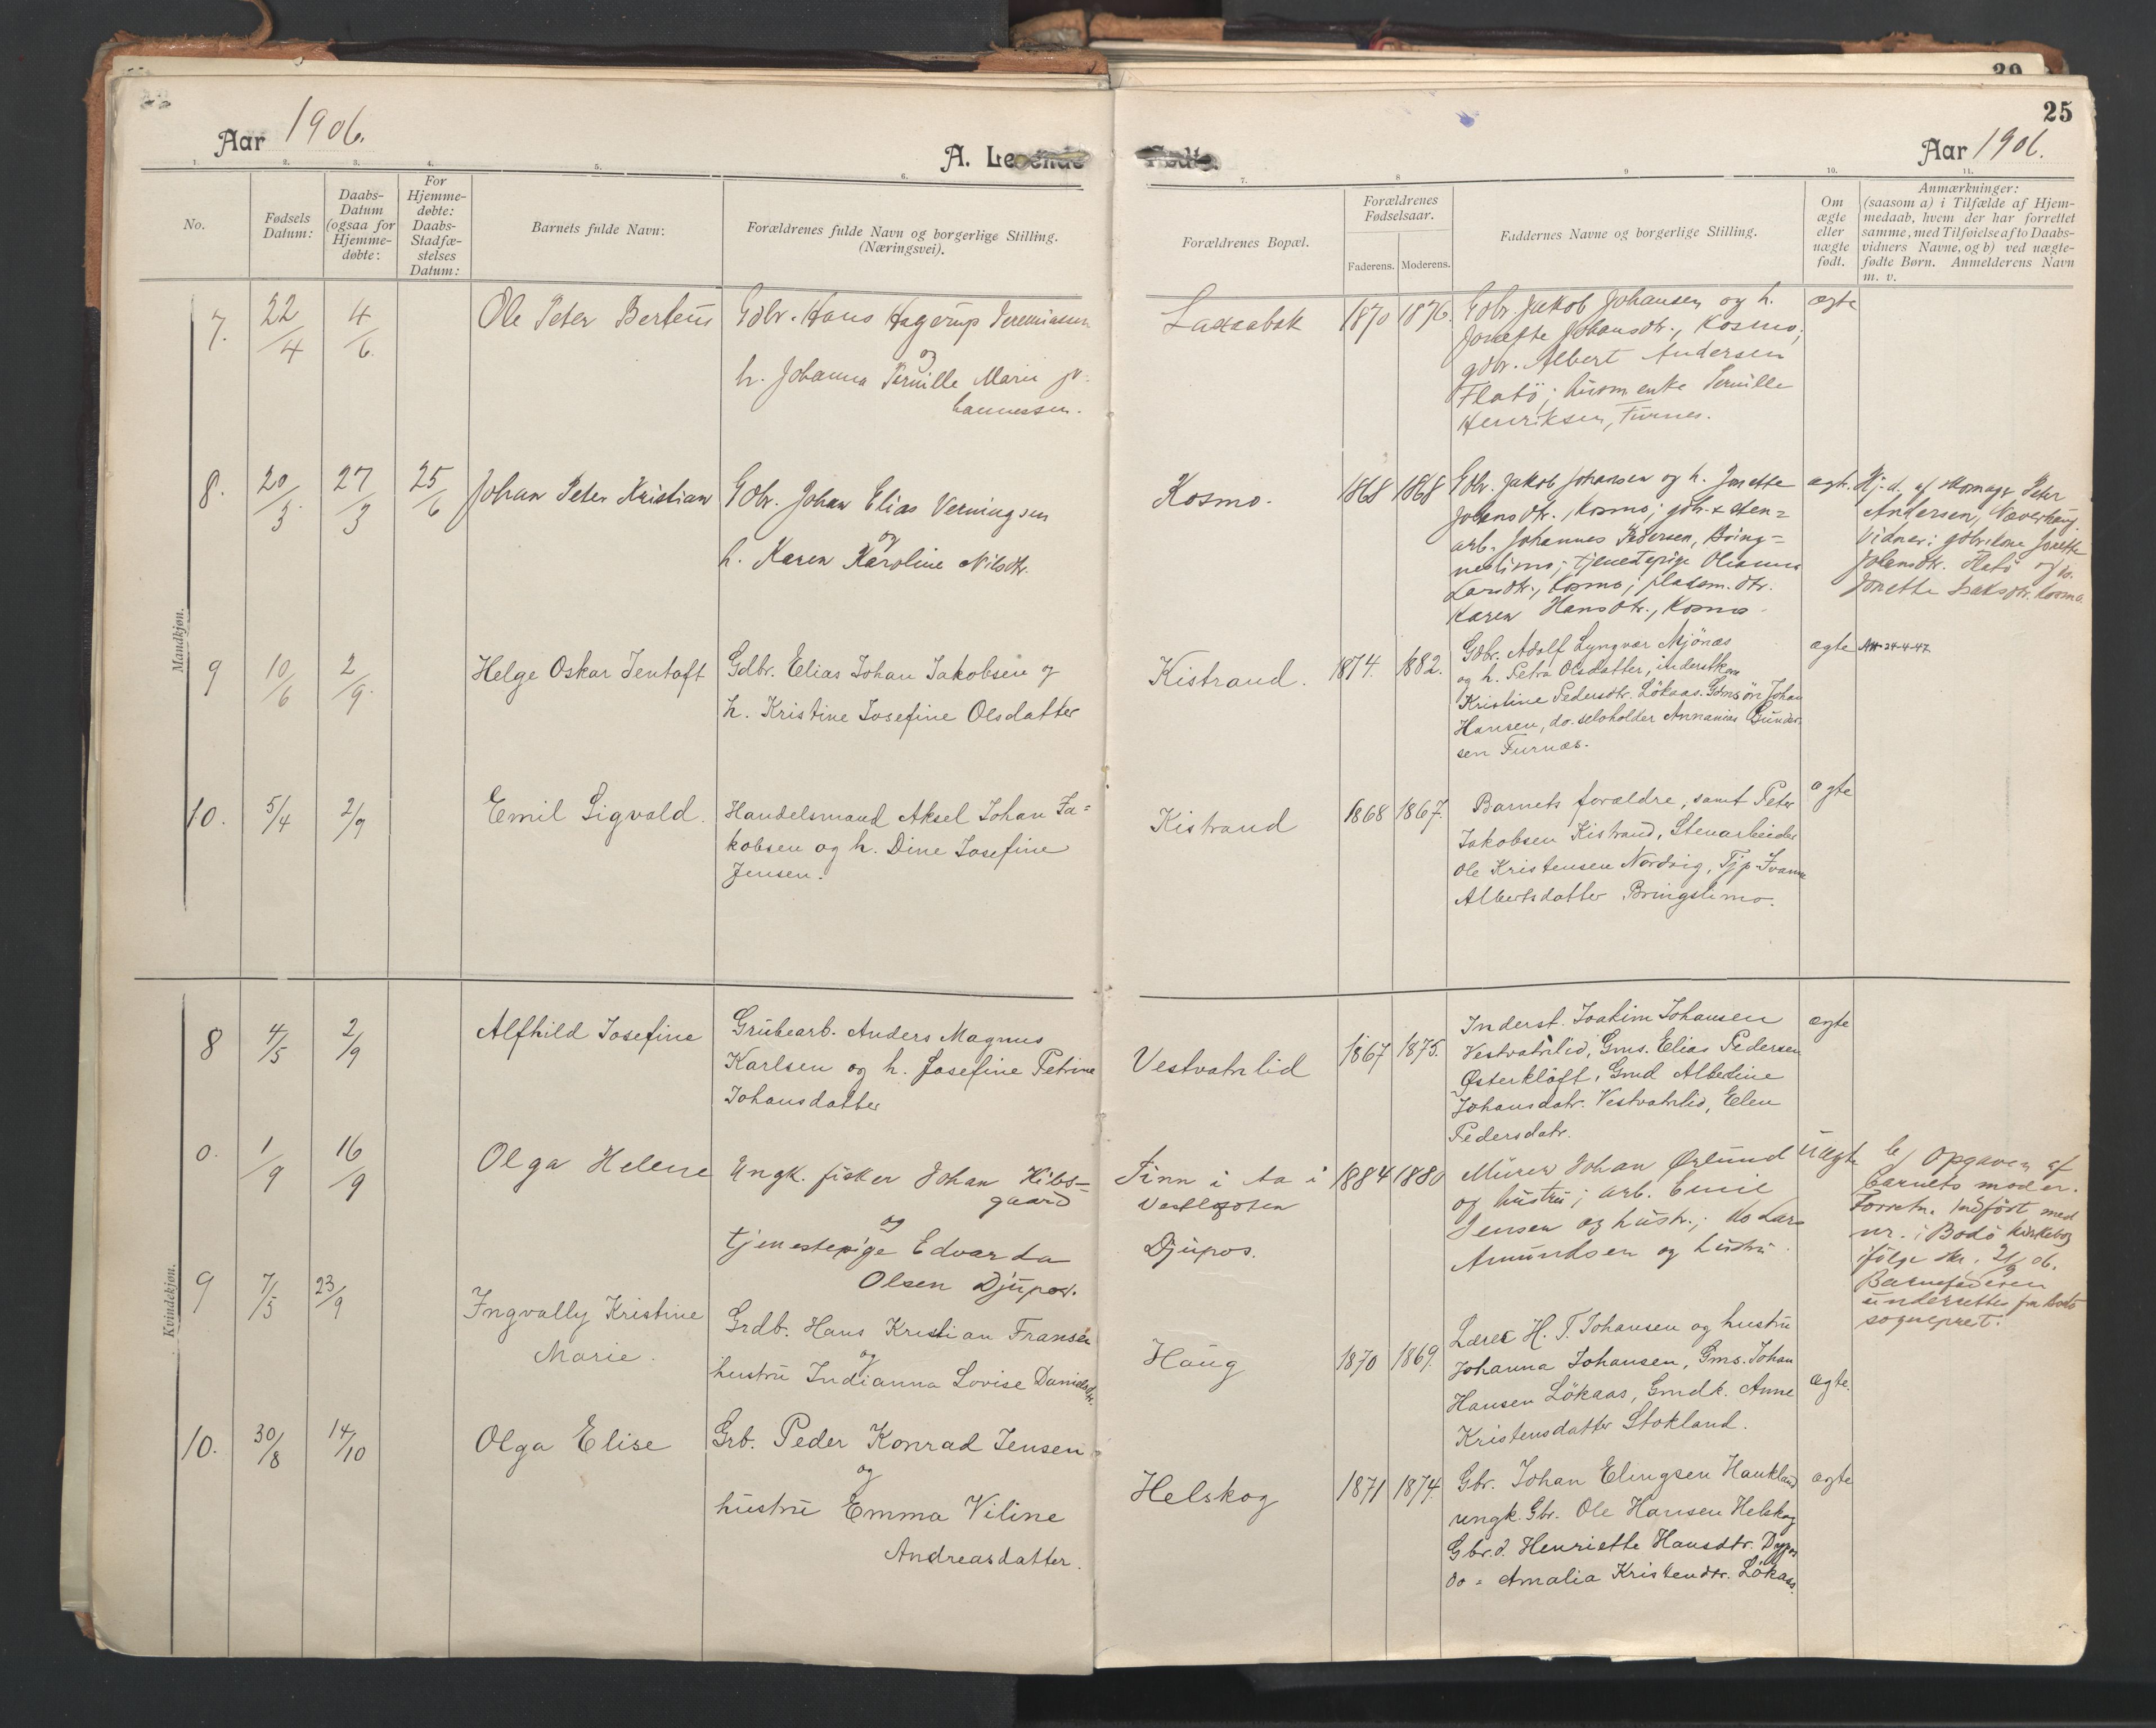 Aar 1906.
A. Levende
Fødte.
Aar 1906.
25
1. 2. 3. 4. 5. 6. 7. 8 9 10. 11.
No.
Fødsels Datum:
Daabs-Datum (ogsaa for Hjemme-døbte:
For Hjemme-døbte: Daabs-Stadfæ-stelses Datum:
Barnets fulde Navn:
Forældrenes fulde Navn og borgerlige Stilling.
(Næringsvei).
Forældrenes Bopæl.
Forældrenes Fødselsaar.
Faderens. Moderens.
Faddernes Navne og borgerlige Stilling.
Om ægte eller uægte født.
Anmærkninger:
(saasom a) i Tilfælde af Hjem-
medaab, hvem der har forrettet
samme, med Tilføielse af to Daabs-
vidners Navne, og b) ved uægte-
fødte Børn. Anmelderens Navn
m. v.
Mandkjøn.
7. 22/4 4/6. Ole Peter Berteus
Gdbr. Hans Hagerup Jeremiassen
og
h. Johanna Pernille Marie Jo-
hannessen.
Laxaabak 1870 1876.
Gdbr. Jakob Johansen og h.
Jonette Johansdtr., Kosmo,
gdbr. Albert Andersen
Flatö; husm.enke Pernille
Henriksen, Furnes.
ægte
8. 20/3 27/3 25/6 Johan Peter Kristian
Gdbr. Johan Elias Verningsen
og
h. Karen Karoline Nilsdtr.
Kosmo. 1868 1868
Gdbr. Jakob Johansen og h. Jonette
Johansdtr., Kosmo; gdbr. & sten-
arb. Johannes Pedersen, Bring-
neslimo; tjenestepige Olianna
Larsdtr., Kosmo; pladsm.dtr.
Karen Hansdtr., Kosmo.
ægte.
Hj.d. af skomager Peter
Andersen, Naverhaug.
Vidner: gdbrkone Jonette
Johansdtr. Flatö og
Jonette Isaksdtr. Kosmo.
9 10/6 2/9. Helge Oskar Jentoft
Gdbr. Elias Johan Jakobsen og
h. Kristine Josefine Olsdatter
Kistrand. 1874. 1882.
Gdbr. Adolf Lyngvær Mjönæs
og h. Petra Olsdatter, inderstkone
Kristine Pedersdtr. Lökaas. Gdmsön Johan
Hansen, do. selvholder Annanias Gunder-
sen Furnæs.
ægte
24-4-47
10. 5/4 2/9 Emil Sigvald.
Handelsmand Aksel Johan Ja-
kobsen og h. Dine Josefine
Jensen.
Kistrand 1868 1867.
Barnets forældre, samt Peter
Jakobsen Kistrand, Stenarbeider
Ole Kristensen Nordvig, Tjp. Ivanna
Albertsdatter Bringslimo.
ægte
Kvindekjøn.
8 4/5 2/9 Alfhild Josefine
Grubearb. Anders Magnus
Karlsen og h. Josefine Petrine
Johansdatter
Vestvatnlid 1867 1875.
Inderst. Joakim Johansen
Vestvatnlid, Gms. Elias Pedersen
Østerkløft, Gmd Albertine
Johansdatr. Vestvatnlid, Elen
Pedersdatr.
ægte
0. 1/9 16/9 Olga Helene
Ungk. fisker Johan Kibs-
gaard
og
tjenestepige Edvarda
Olsen Djupos.
Finn i Aa i
Vestlofoten
Djupos.
1884 1880
Murer Johan Ørlund
og hustru; arb. Emil
Jensen og hustr.; do Lars
Amundsen og hustru
uægte
b/ Opgaven af
barnets moder.
Forretn. indført med
nr. i Bodö kirkebog
ifølge skr. 21/9 06.
Barnefaderen
underrettes fra Bodö
sogneprest.
9 7/5 23/9 Ingvally Kristine
Marie.
Grdb. Hans Kristian Fransen
og
hustru Indianna Lovise Danielsdtr.
Haug 1870 1869.
Lærer H. T. Johansen og hustru
Johanna Johansen, Gms. Johan
Hansen Lökaas, Gmdk. Anne
Kristensdatter Stokland.
ægte.
10. 30/8 14/10 Olga Elise
Grb. Peder Konrad Jensen
og
hustru Emma Viline
Andreasdatter.
Helskog 1871 1874.
Gbr. Johan Elingsen Haukland
ungk. Gbr. Ole Hansen Helskog
Gbr.d. Henriette Hansdtr. Djupos
do - Amalia Kristendtr. Lökaas.
ægte